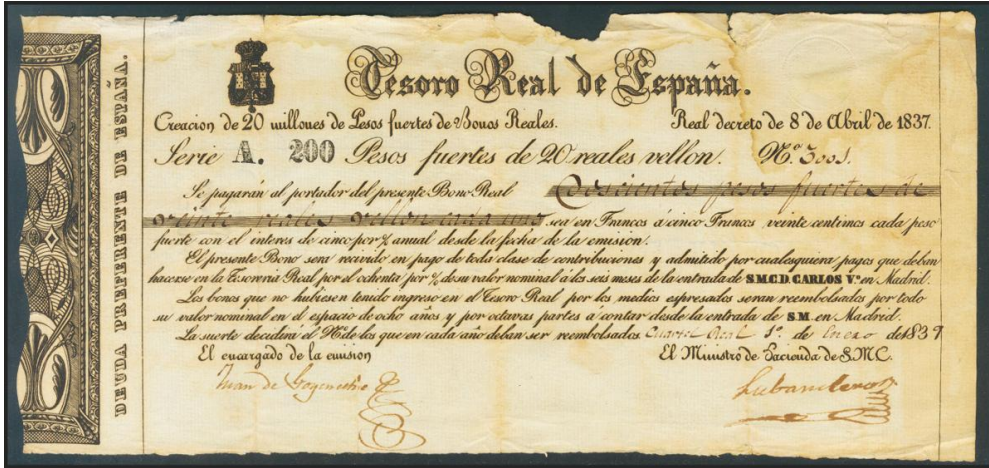 DEUDA PREFERENTE DE ESPAÑA.
Tesoro Real de España.
Creacion de 20 millones de Pesos fuertes de Bonos Reales. Real decreto de 8 de Abril de 1837.
Serie A. 200 Pesos fuertes de 20 reales vellon. Nº 3001.
Se pagarán al portador del presente Bono Real Doscientos pesos fuertes de
veinte reales vellon cada uno sea en Francos á cinco Francos veinte centimos cada peso
fuerte con el interes de cinco por % anual desde la fecha de la emision.
El presente Bono sera recivido en pago de toda clase de contribuciones y admitido por cualesquiera pagos que deban
hacerse en la Tesoreria Real por el ochenta por % de su valor nominal á los seis meses de la entrada de S.M.C.D. CARLOS Vº en Madrid.
Los bonos que no hubiesen tenido ingreso en el Tesoro Real por los medios espresados seran reembolsados por todo
su valor nominal en el espacio de ocho años y por octavas partes á contar desde la entrada de S.M. en Madrid.
La suerte decidirá el Nº de los que en cada año deban ser reembolsados. Cuartel Real 1º de Enero de 1837
El encargado de la emision El Ministro de Hacienda de S.M.C.
Juan de